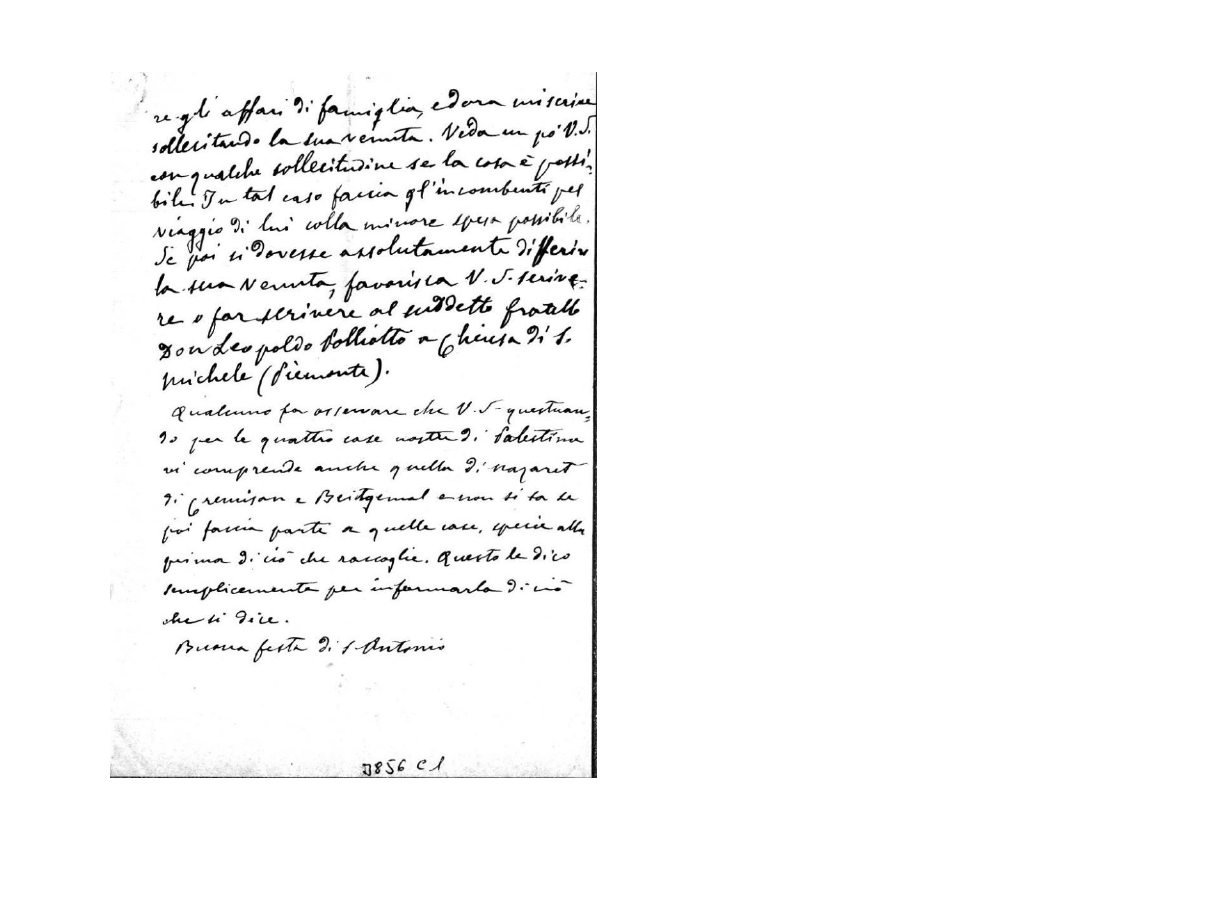 re gli affari di famiglia, ed ora mi scrive
sollecitando la sua venuta. Veda un pò V.S.
con qualche sollecitudine se la cosa è possi-
bile. In tal caso faccia gl'incombenti pel
viaggio di lui colla minore spesa possibile.
Se poi si dovesse assolutamente differire
la sua venuta, favorisca V. S. scrive-
re o far scrivere al suddetto fratello
Don Leopoldo Polliotto a Chiusa di S.
Michele (Piemonte).
Qualcuno fa osservare che V. S. questuan-
do per le quattro case nostre di Palestina
vi comprende anche quella di Nazaret
di Cremisan e Beitgemal e non si sa se
poi faccia parte a quelle case, specie alla
prima di ciò che raccoglie. Questo le dico
semplicemente per informarla di ciò
che si dice.
Buona festa di S. Antonio
3856 C1